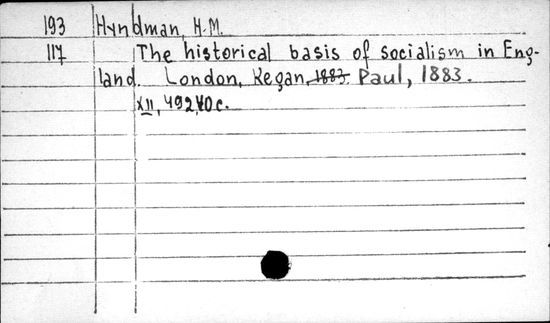 193 Hyndman, H.M.
117 The historical basis of socialism in Eng-
land. London, Kegan, 1883. Paul, 1883.
XII, 492, 40 c.